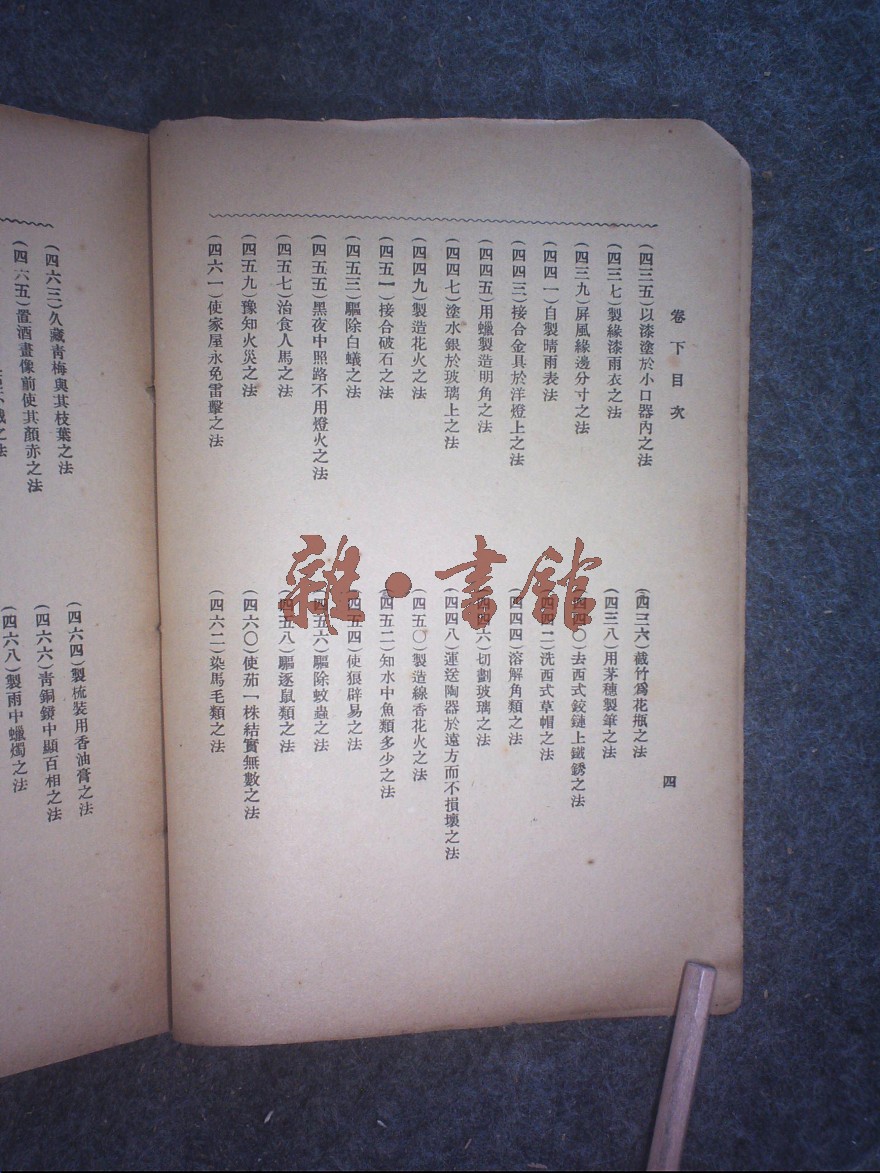 卷下目次
四
(四三五)以漆塗於小口器內之法
(四三六)截竹爲花瓶之法
(四三七)製緣漆雨衣之法
(四三八)用茅穗製筆之法
(四三九)屏風緣邊分寸之法
(四四〇)去西式鉸鏈上鐵銹之法
(四四一)自製晴雨表法
(四四二)洗西式草帽之法
(四四三)接合金具於洋燈上之法
(四四四)溶解角類之法
(四四五)用蠟製造明角之法
(四四六)切劃玻璃之法
(四四七)塗水銀於玻璃上之法
(四四八)運送陶器於遠方而不損壞之法
(四四九)製造花火之法
(四五〇)製造線香花火之法
(四五一)接合破石之法
(四五二)知水中魚類多少之法
(四五三)驅除白蟻之法
(四五四)使狼辟易之法
(四五五)黑夜中照路不用燈火之法
(四五六)驅除蚊蟲之法
(四五七)治食人馬之法
(四五八)驅逐鼠類之法
(四五九)豫知火災之法
(四六〇)使茄一株結實無數之法
(四六一)使家屋永免雷擊之法
(四六二)染馬毛類之法
(四六三)久藏靑梅與其枝葉之法
(四六四)製梳裝用香油膏之法
(四六五)置酒畫像前使其顏赤之法
(四六六)靑銅鏡中顯百相之法
之法
(四六八)製雨中蠟燭之法
雜·書館